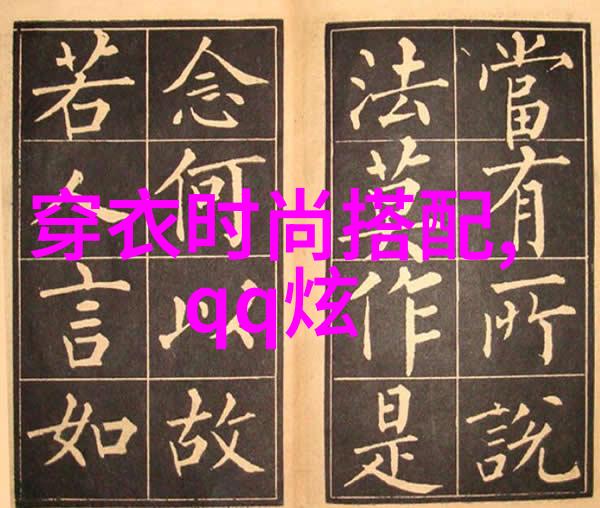 當有所說
法莫作是
念何以故
若人言如
穿衣时尚搭配,
qq炫